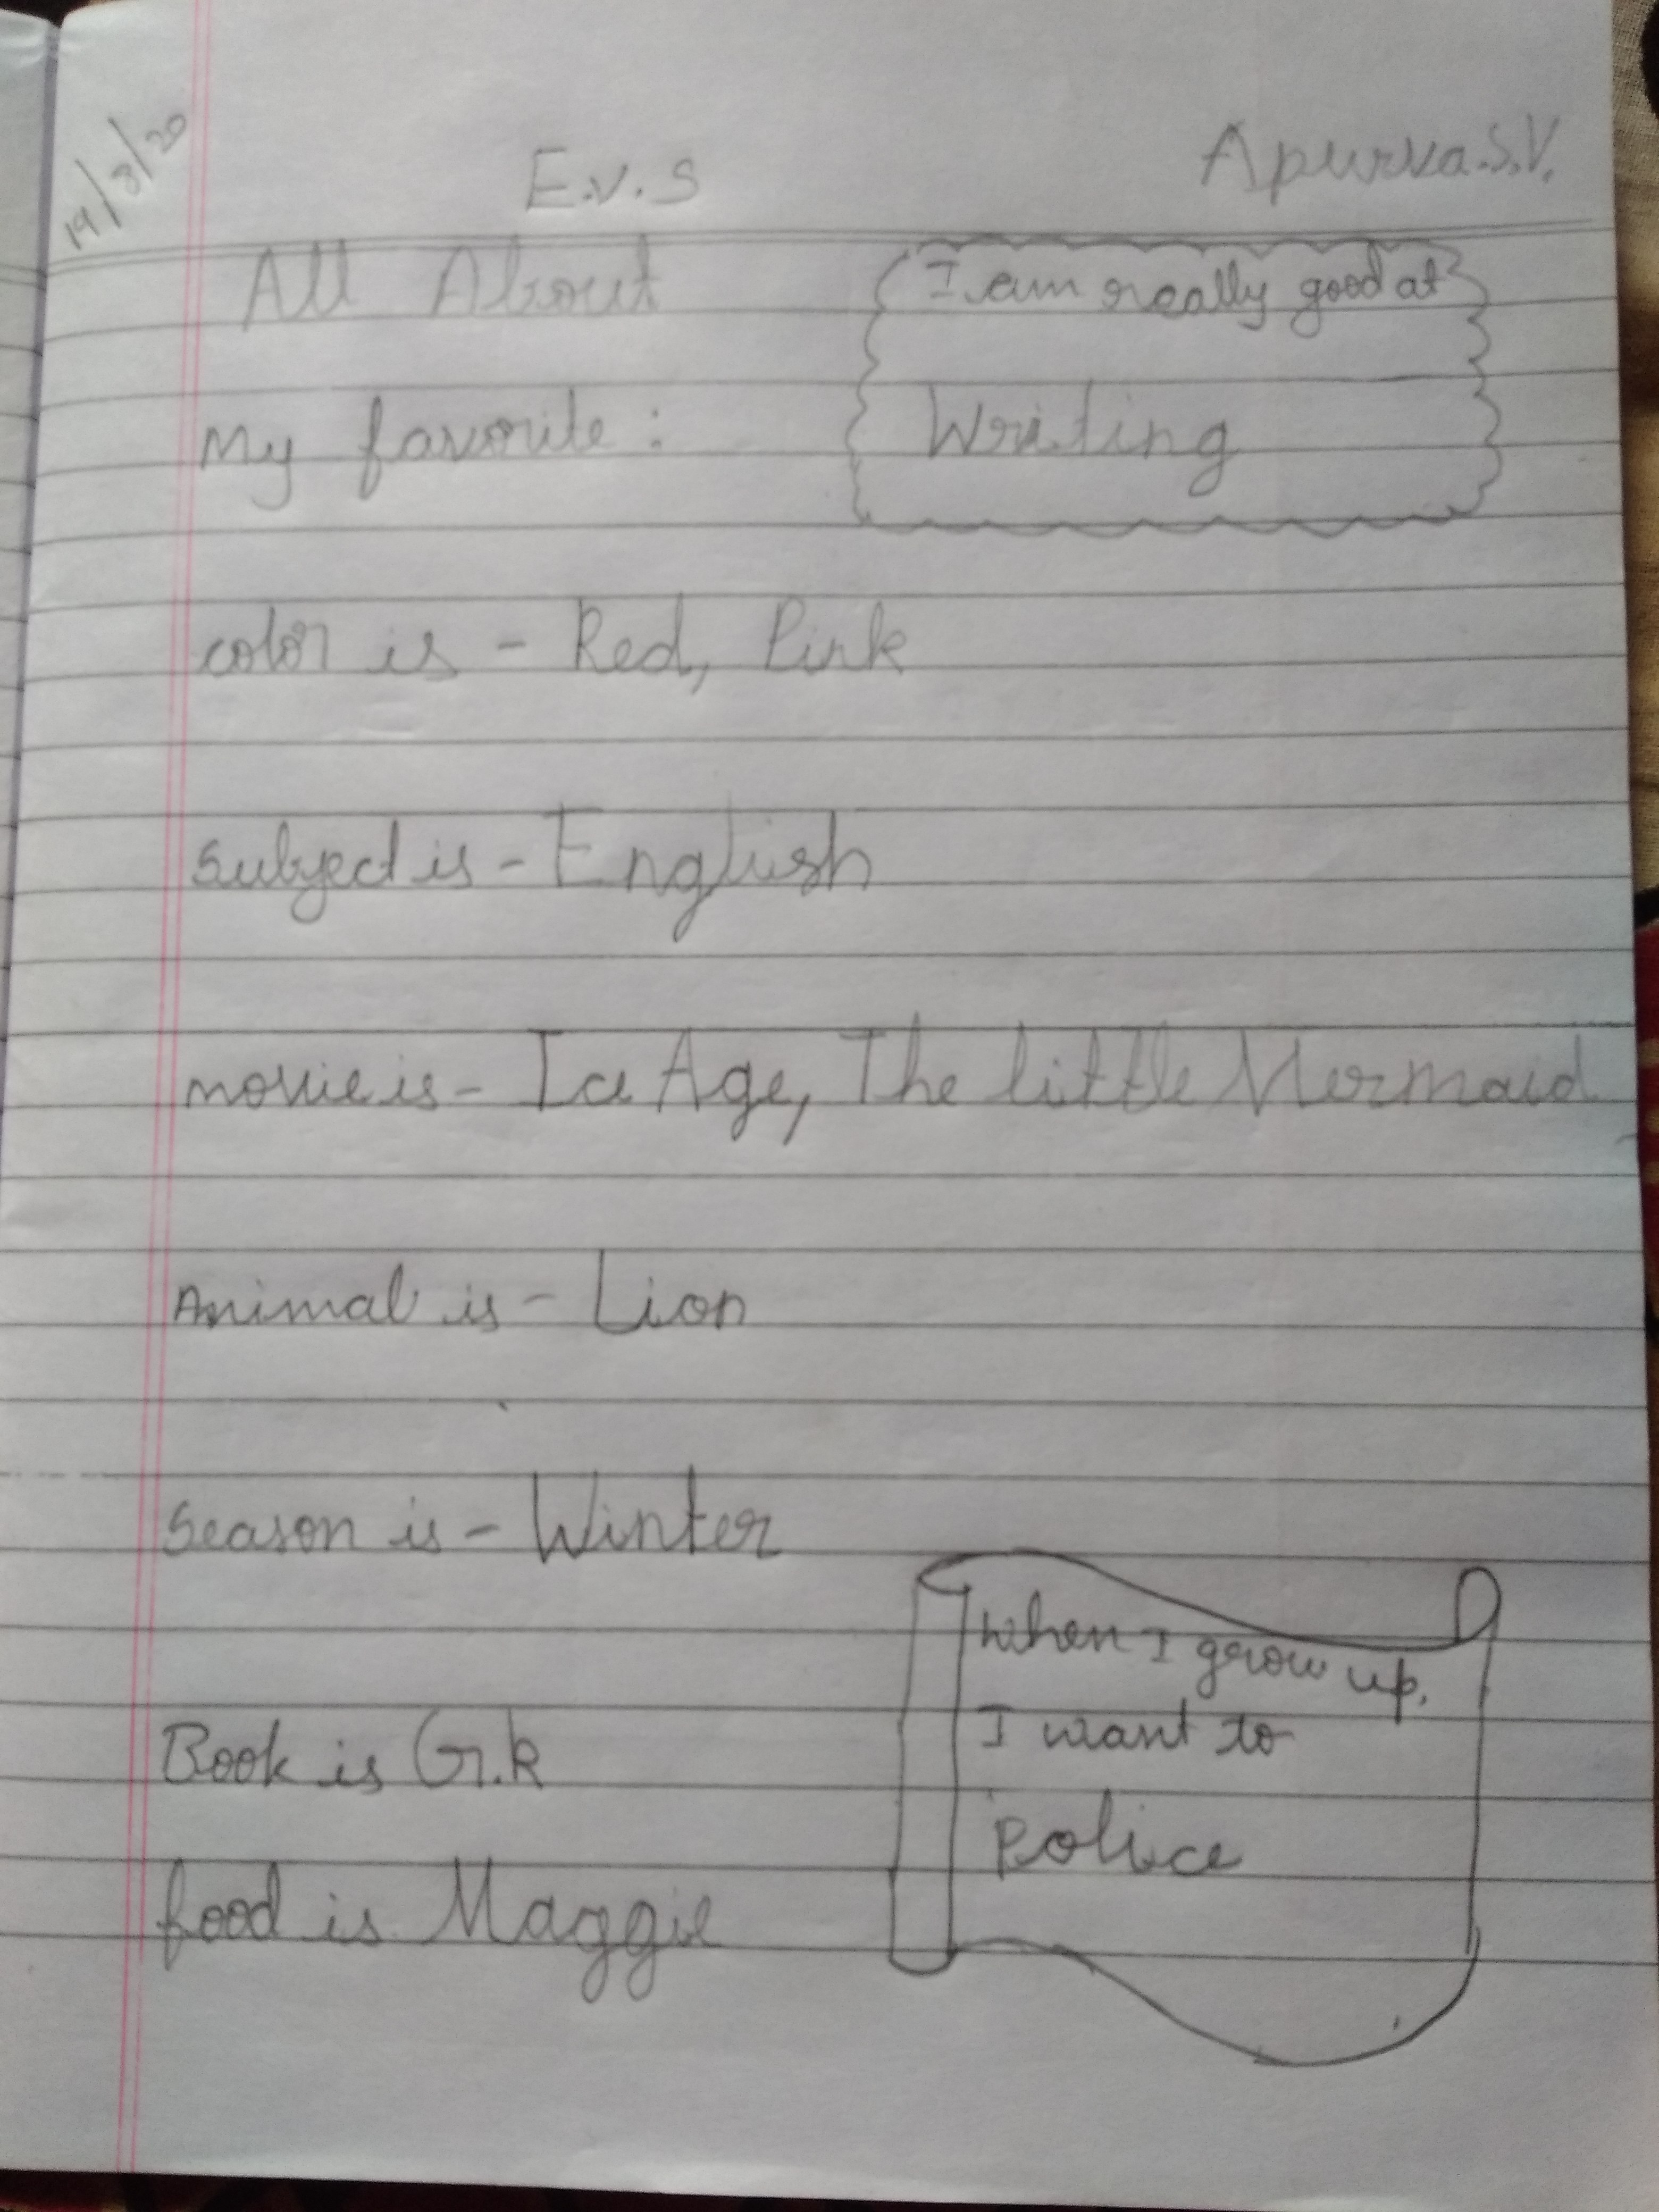 19/3/20
E.V.S
Apurva.S.V.
All About
I am really good at
Writing
My favorite :
color is - Red, Pink
Subject is - English
movie is - Ice Age, The little Mermaid
Animal is - Lion
Season is - Winter
When I grow up,
I want to
Police
Book is G.k
food is Maggie